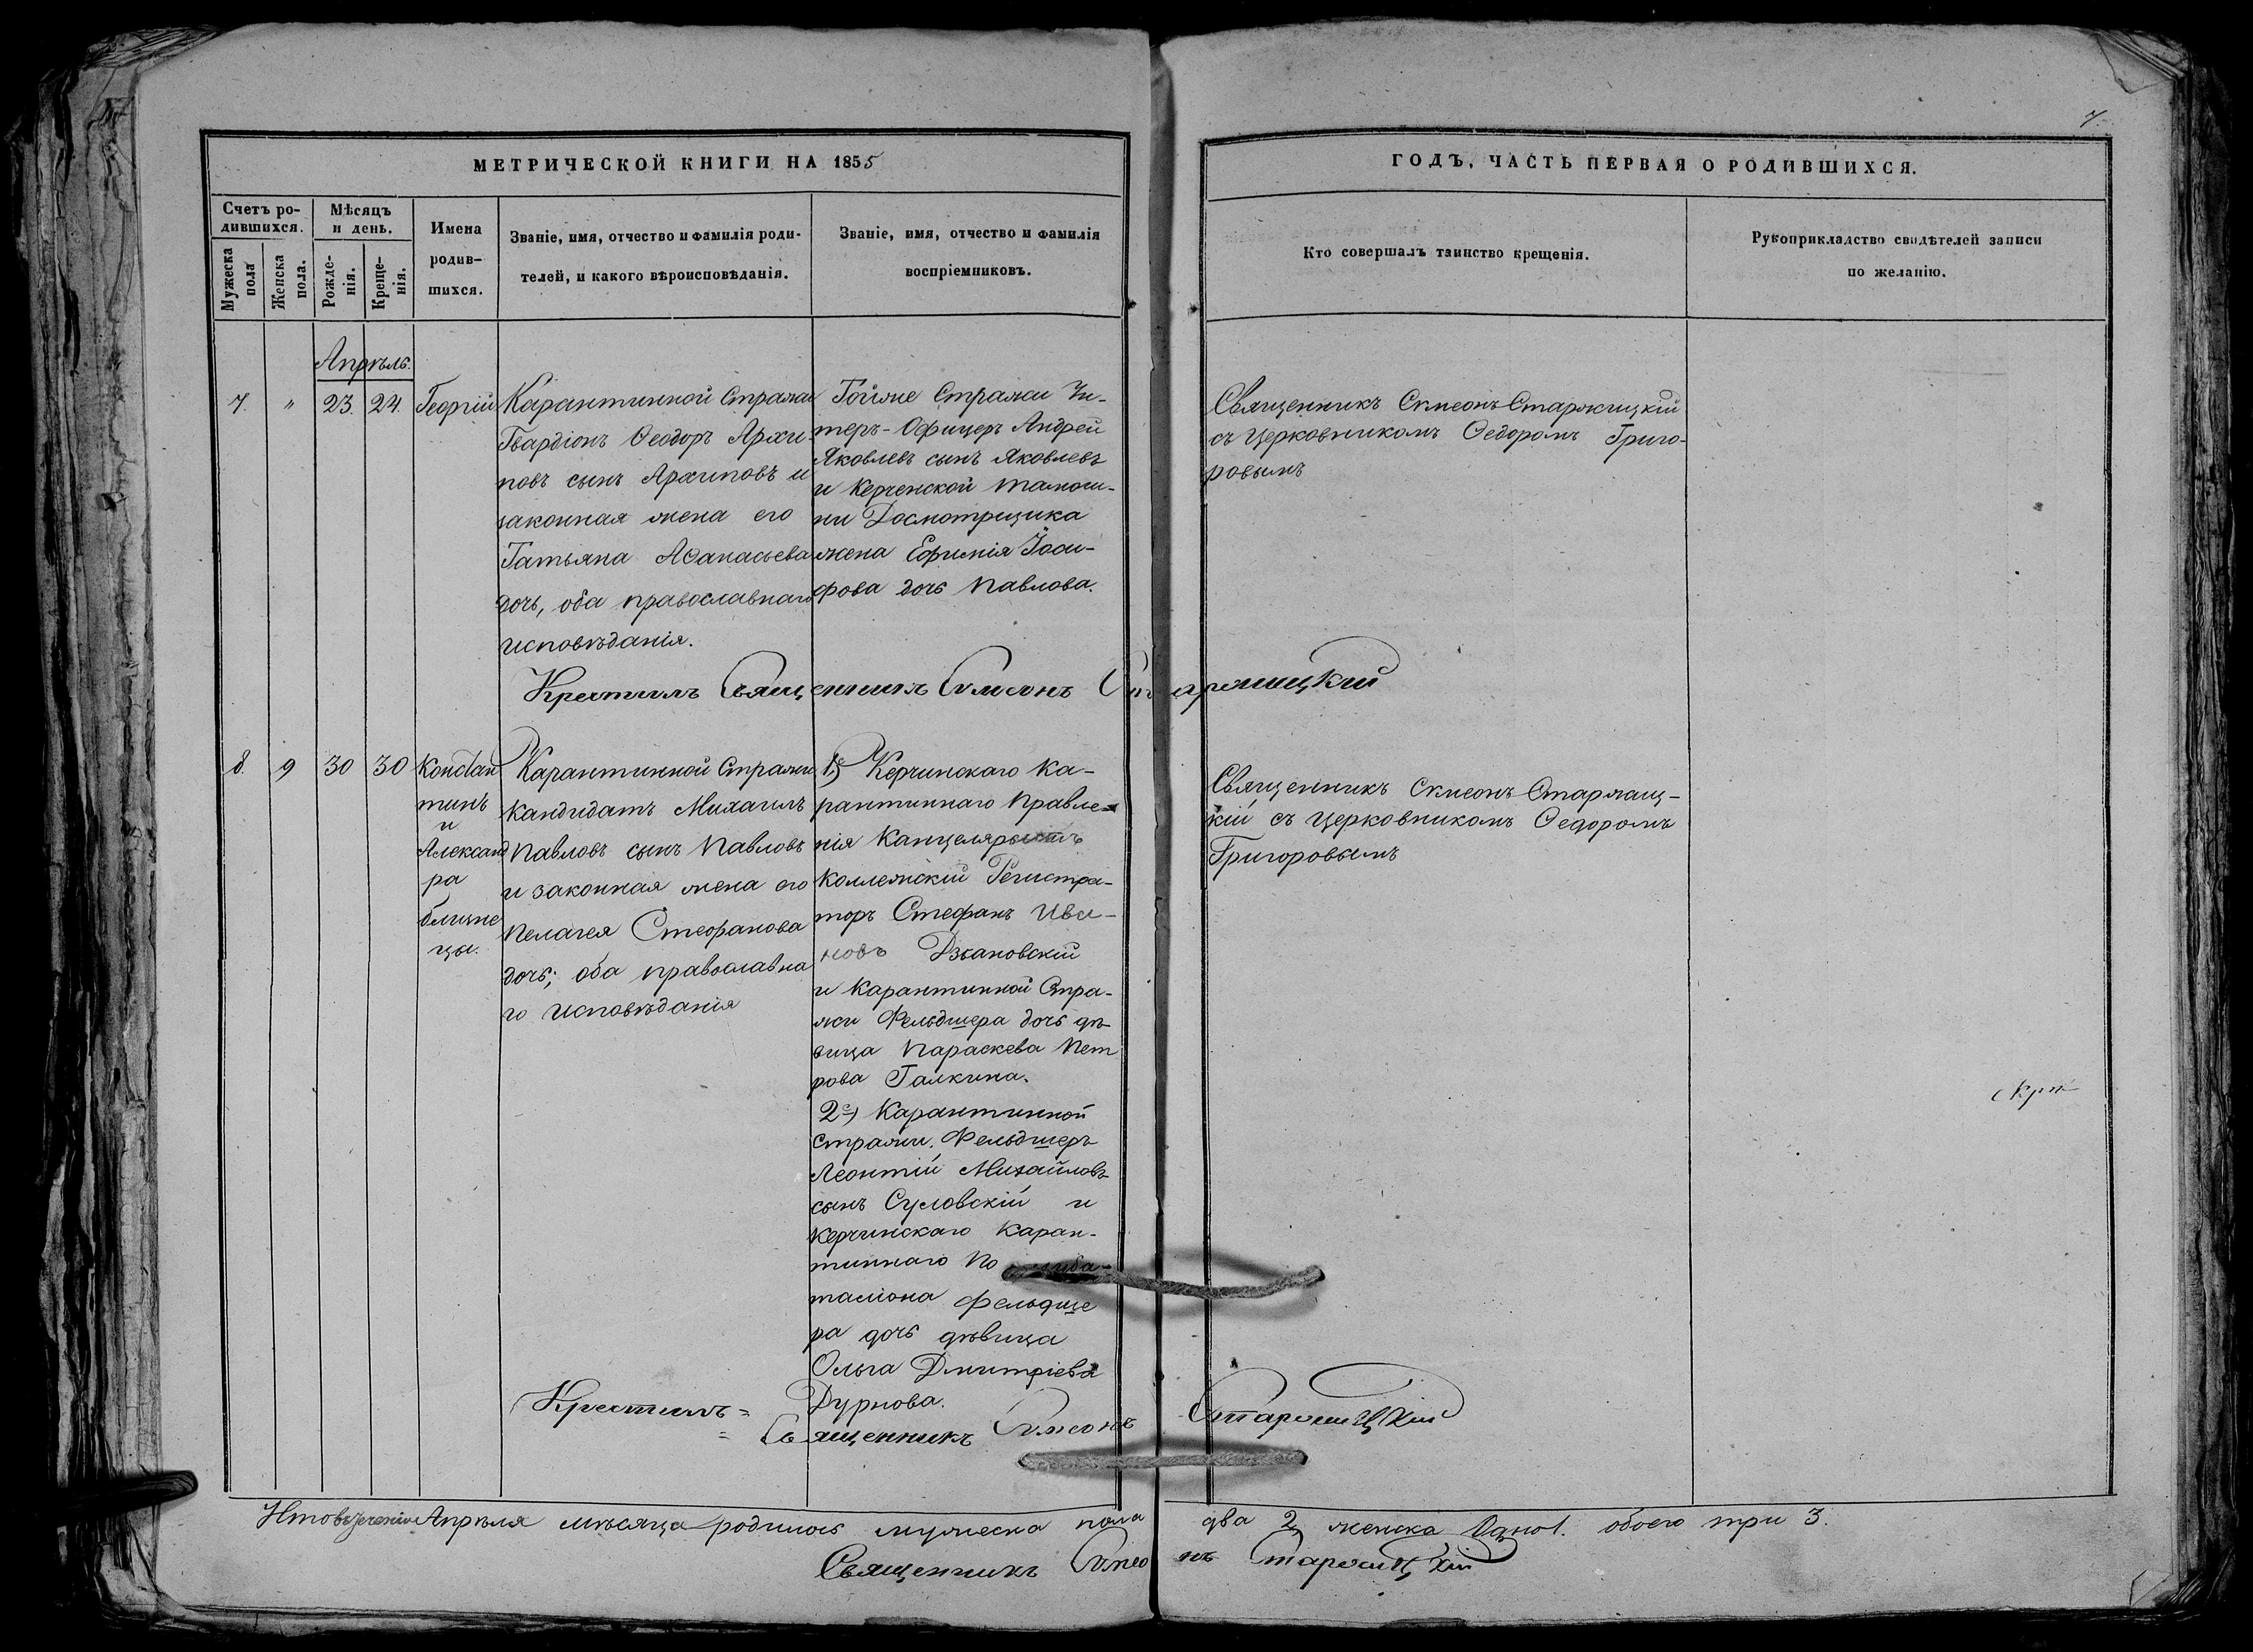 7.
МЕТРИЧЕСКОЙ КНИГИ НА 1855
ГОДЪ, ЧАСТЬ ПЕРВАЯ О РОДИВШИХСЯ.
Счетъ ро-
дившихся.
Мужеска
пола
Женска
пола.
Мѣсяцъ
и день.
Рожде-
нія.
Креще-
нія.
Имена
родив-
шихся.
Званіе, имя, отчество и фамилія роди-
телей, и какого вѣроисповѣданія.
Званіе, имя, отчество и фамилія
воспріемниковъ.
Кто совершалъ таинство крещенія.
Рукоприкладство свидѣтелей записи
по желанію.
Апрѣль.
7.
"
23.
24.
Георгій
Карантинной Стражи
Гвардіонъ Ѳеодоръ Архи-
повъ сынъ Архиповъ и
законная жена его
Татьяна Аѳанасьева
дочь, оба православнаго
исповѣданія.
Тойже Стражи Ун-
теръ-Офицеръ Андрей
Яковлевъ сынъ Яковлевъ
и Керченской таможн-
ни Досмотрщика
жена Ефимія Іоси-
фова дочь Павлова.
Священникъ Симеонъ Старжицкій
съ Церковникомъ Ѳедоромъ Григо-
ровымъ
Крестилъ Священникъ Симеонъ Старжицкій
8.
9
30
30
Констан
тинъ
и
Александ
ра
близне
цы.
Карантинной Стражи
Кандидатъ Михаилъ
Павловъ сынъ Павловъ
и законная жена его
Пелагея Стефанова
дочь; оба православна
го исповѣданія
1) Керчинскаго Ка-
рантиннаго Правле-
нія Канцеляристъ
Коллежскій Регистра-
торъ Стефанъ Ива-
новъ Дзбановскій
и Карантинной Стра-
жи Фельдшера дочь дѣ-
вица Параскева Пет
рова Галкина.
2) Карантинной
Стражи Фельдшеръ
Леонтій Михайловъ
сынъ Сусловскій и
Керчинскаго Каран-
тиннаго По
таліона Фельдше
ра дочь дѣвица
Ольга Дмитріева
Дурнова.
Священникъ Симеонъ Старжиц-
кій съ Церковникомъ Ѳедоромъ
Григоровымъ
Крестилъ =
= Священникъ Симеонъ Старжицкій
Апрѣля мѣсяца родилось мужеска пола два 2, женска одно 1. обоего три 3.
Священникъ Симеонъ Старжицкій